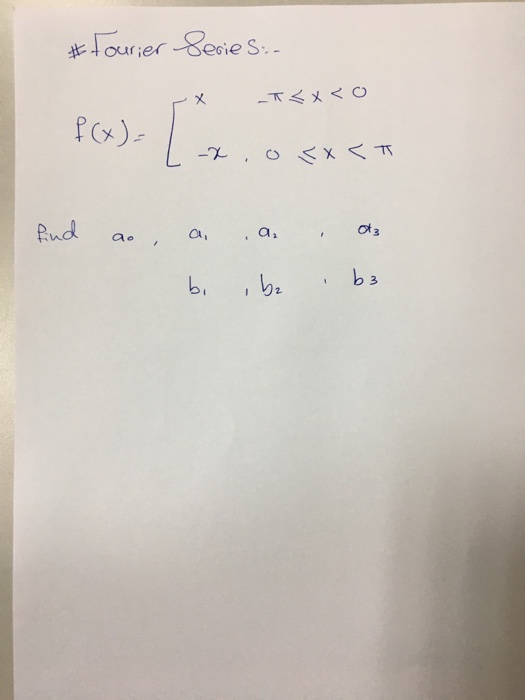 # Fourier Series:-
x -π ≤ x < 0
f(x) = [
-x , 0 ≤ x < π
find a₀ , a₁ , a₂ , a₃
b₁ , b₂ , b₃